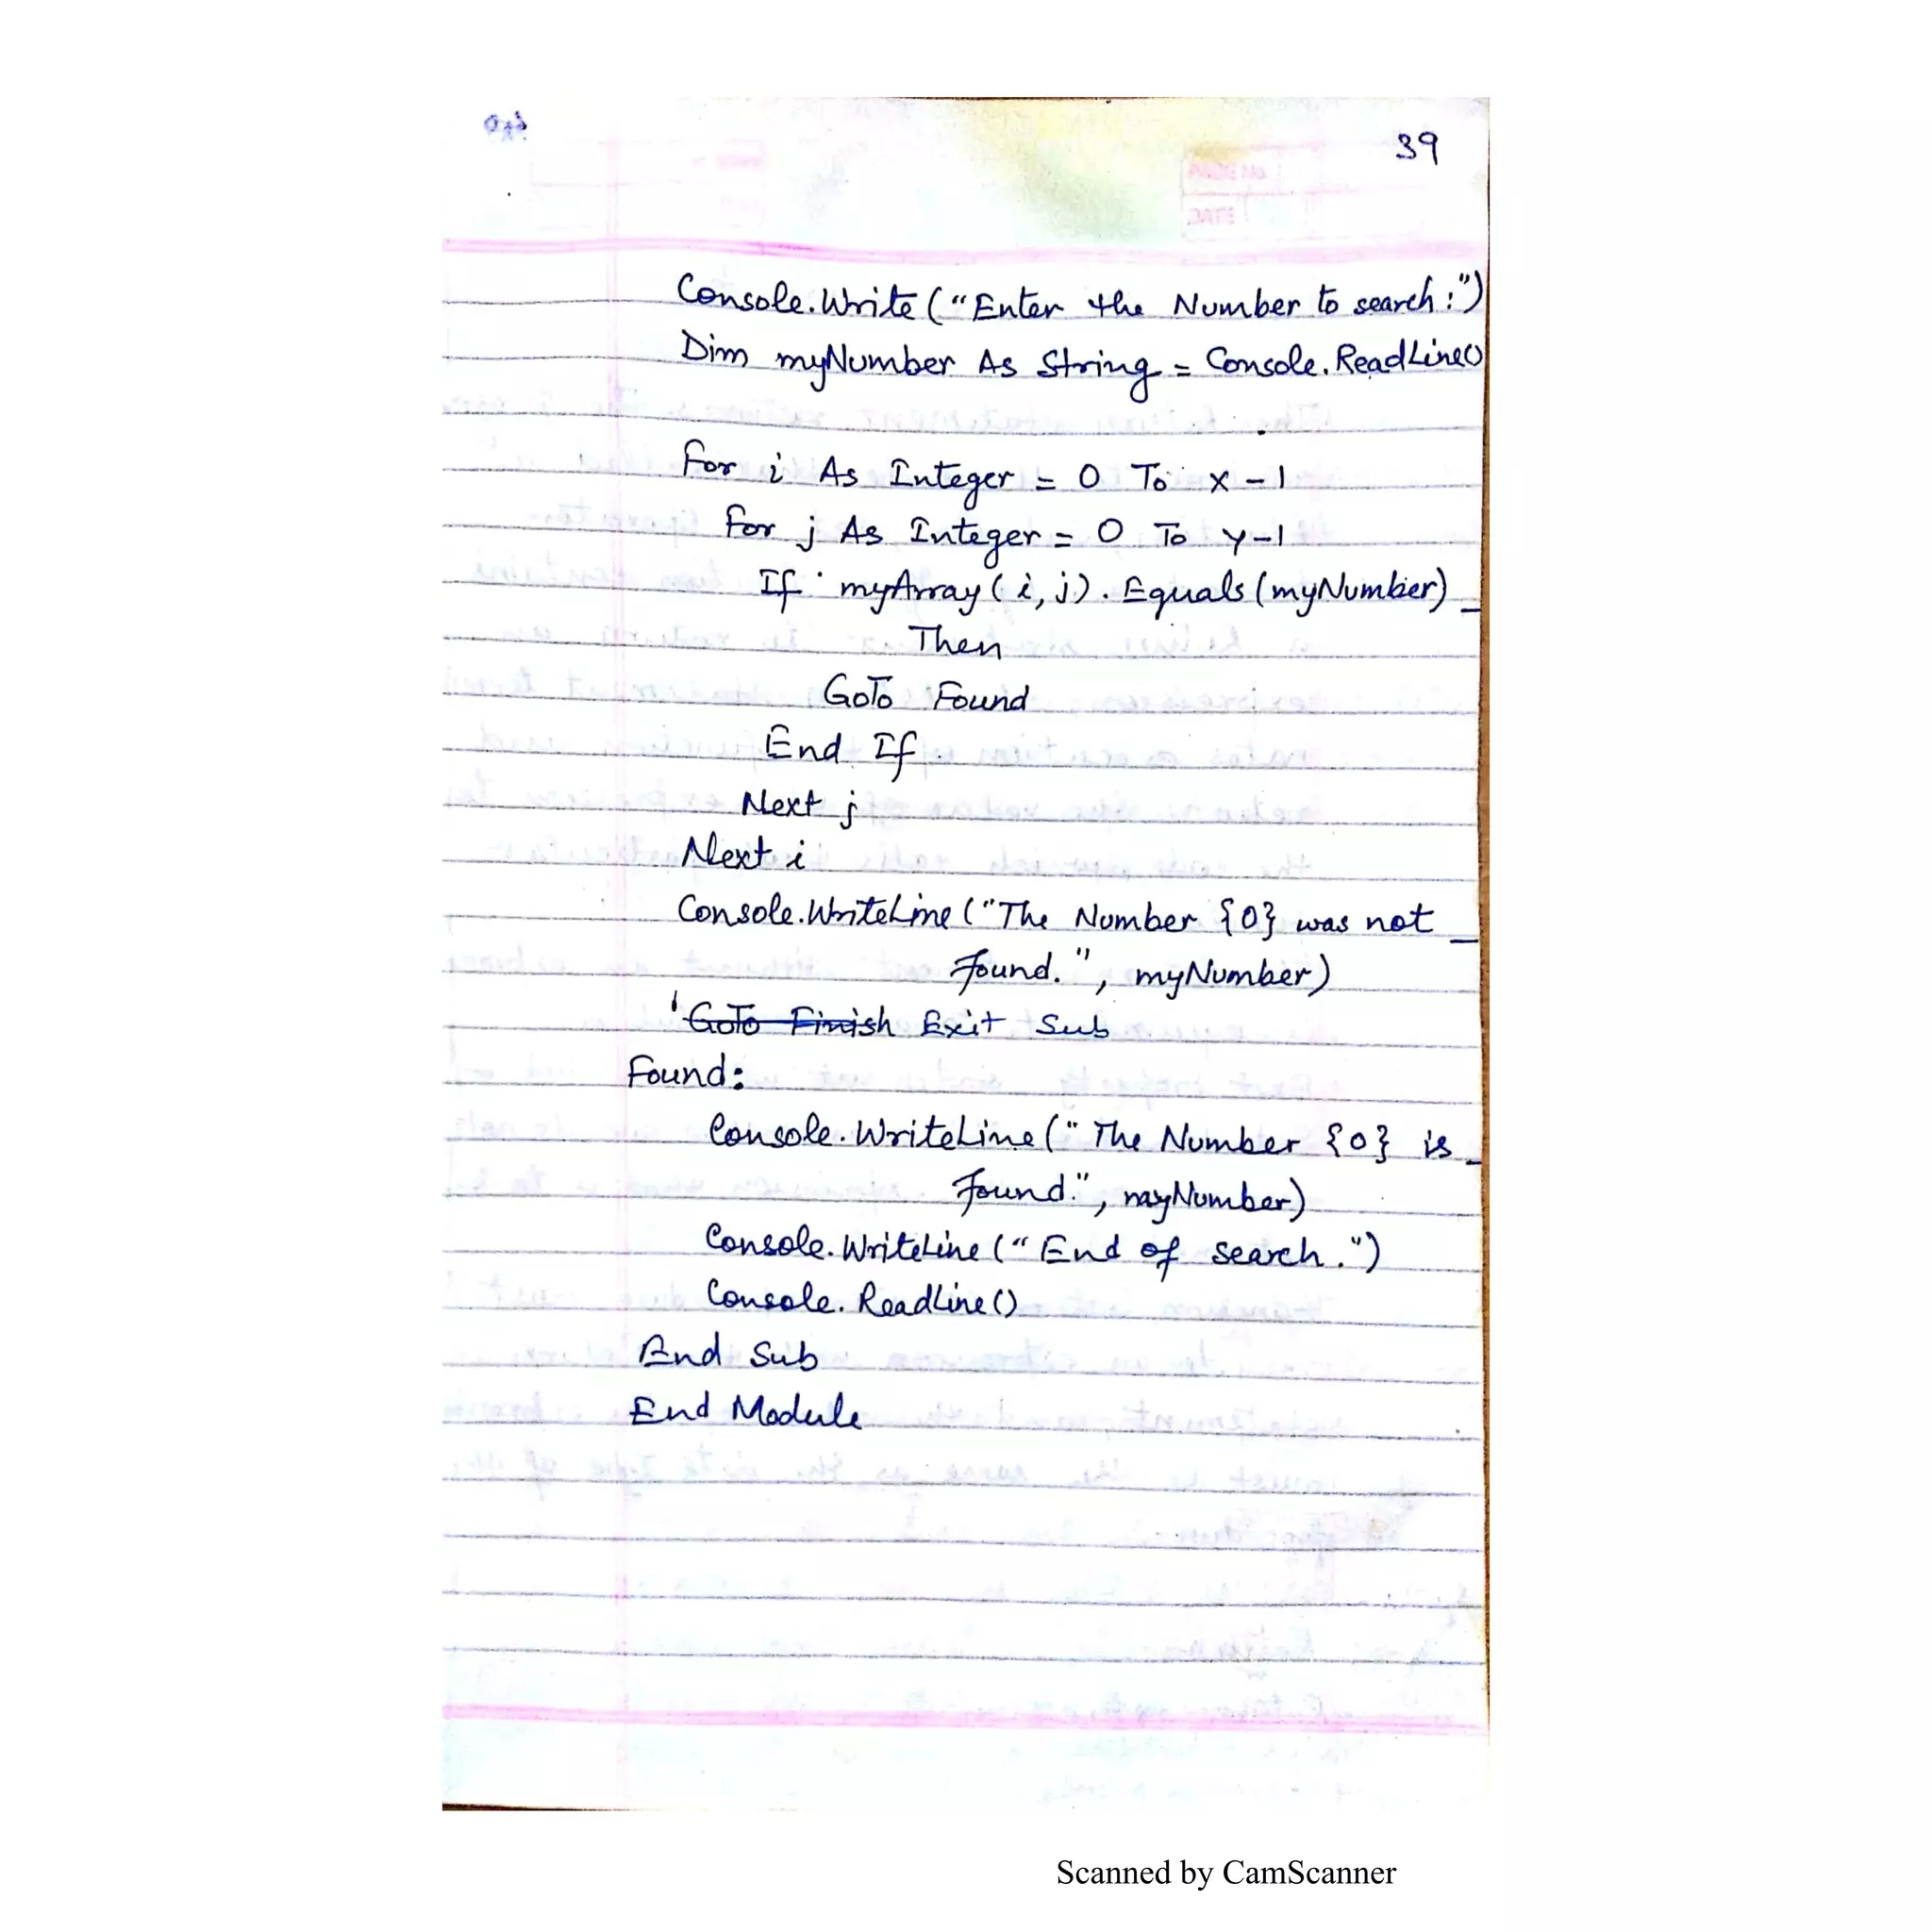 39
Console.Write("Enter the Number to search:")
Dim myNumber As String = Console.ReadLine()
For i As Integer = 0 To x-1
For j As Integer = 0 To y-1
If myArray(i,j).Equals(myNumber) _
Then
GoTo Found
End If
Next j
Next i
Console.WriteLine("The Number {0} was not _
found.", myNumber)
' GoTo Finish Exit Sub
Found:
Console.WriteLine("The Number {0} is _
found.", myNumber)
Console.WriteLine("End of search.")
Console.ReadLine()
End Sub
End Module
Scanned by CamScanner